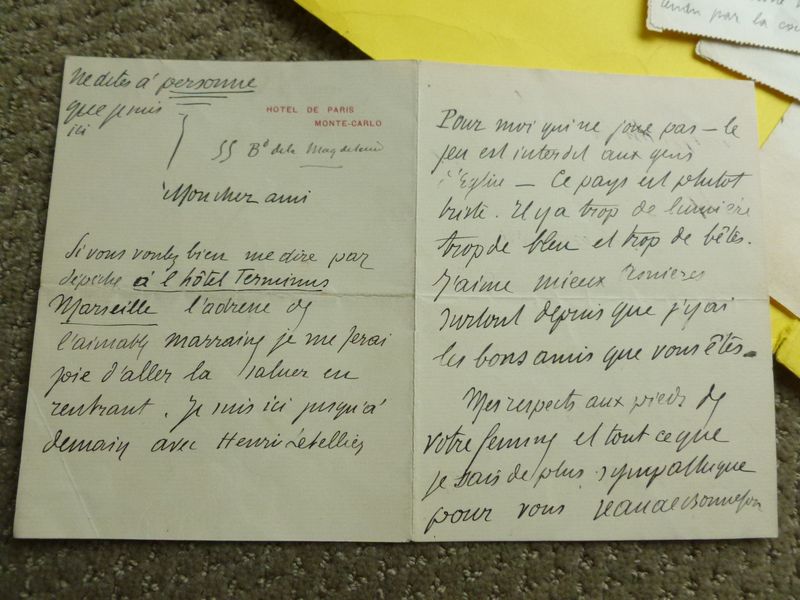 Ne dites à personne
que je suis
ici
HOTEL DE PARIS
MONTE-CARLO
55 Bd de la Magdeleine
Mon cher ami
Si vous voulez bien me dire par
dépêche à l'hôtel Terminus
Marseille l'adresse de
l'aimable marraine je me ferai
joie d'aller la saluer en
rentrant. Je suis ici jusqu'à
demain avec Henri Letellier
Pour moi qui ne joue pas — le
jeu est interdit aux gens
d'Eglise — Ce pays est plutôt
triste. Il y a trop de lumière
trop de bleu et trop de bêtes.
J'aime mieux
surtout depuis que j'y ai
les bons amis que vous êtes.
Mes respects aux pieds de
votre femme et tout ce que
je sais de plus sympathique
pour vous Jean de Bonnefon
par la